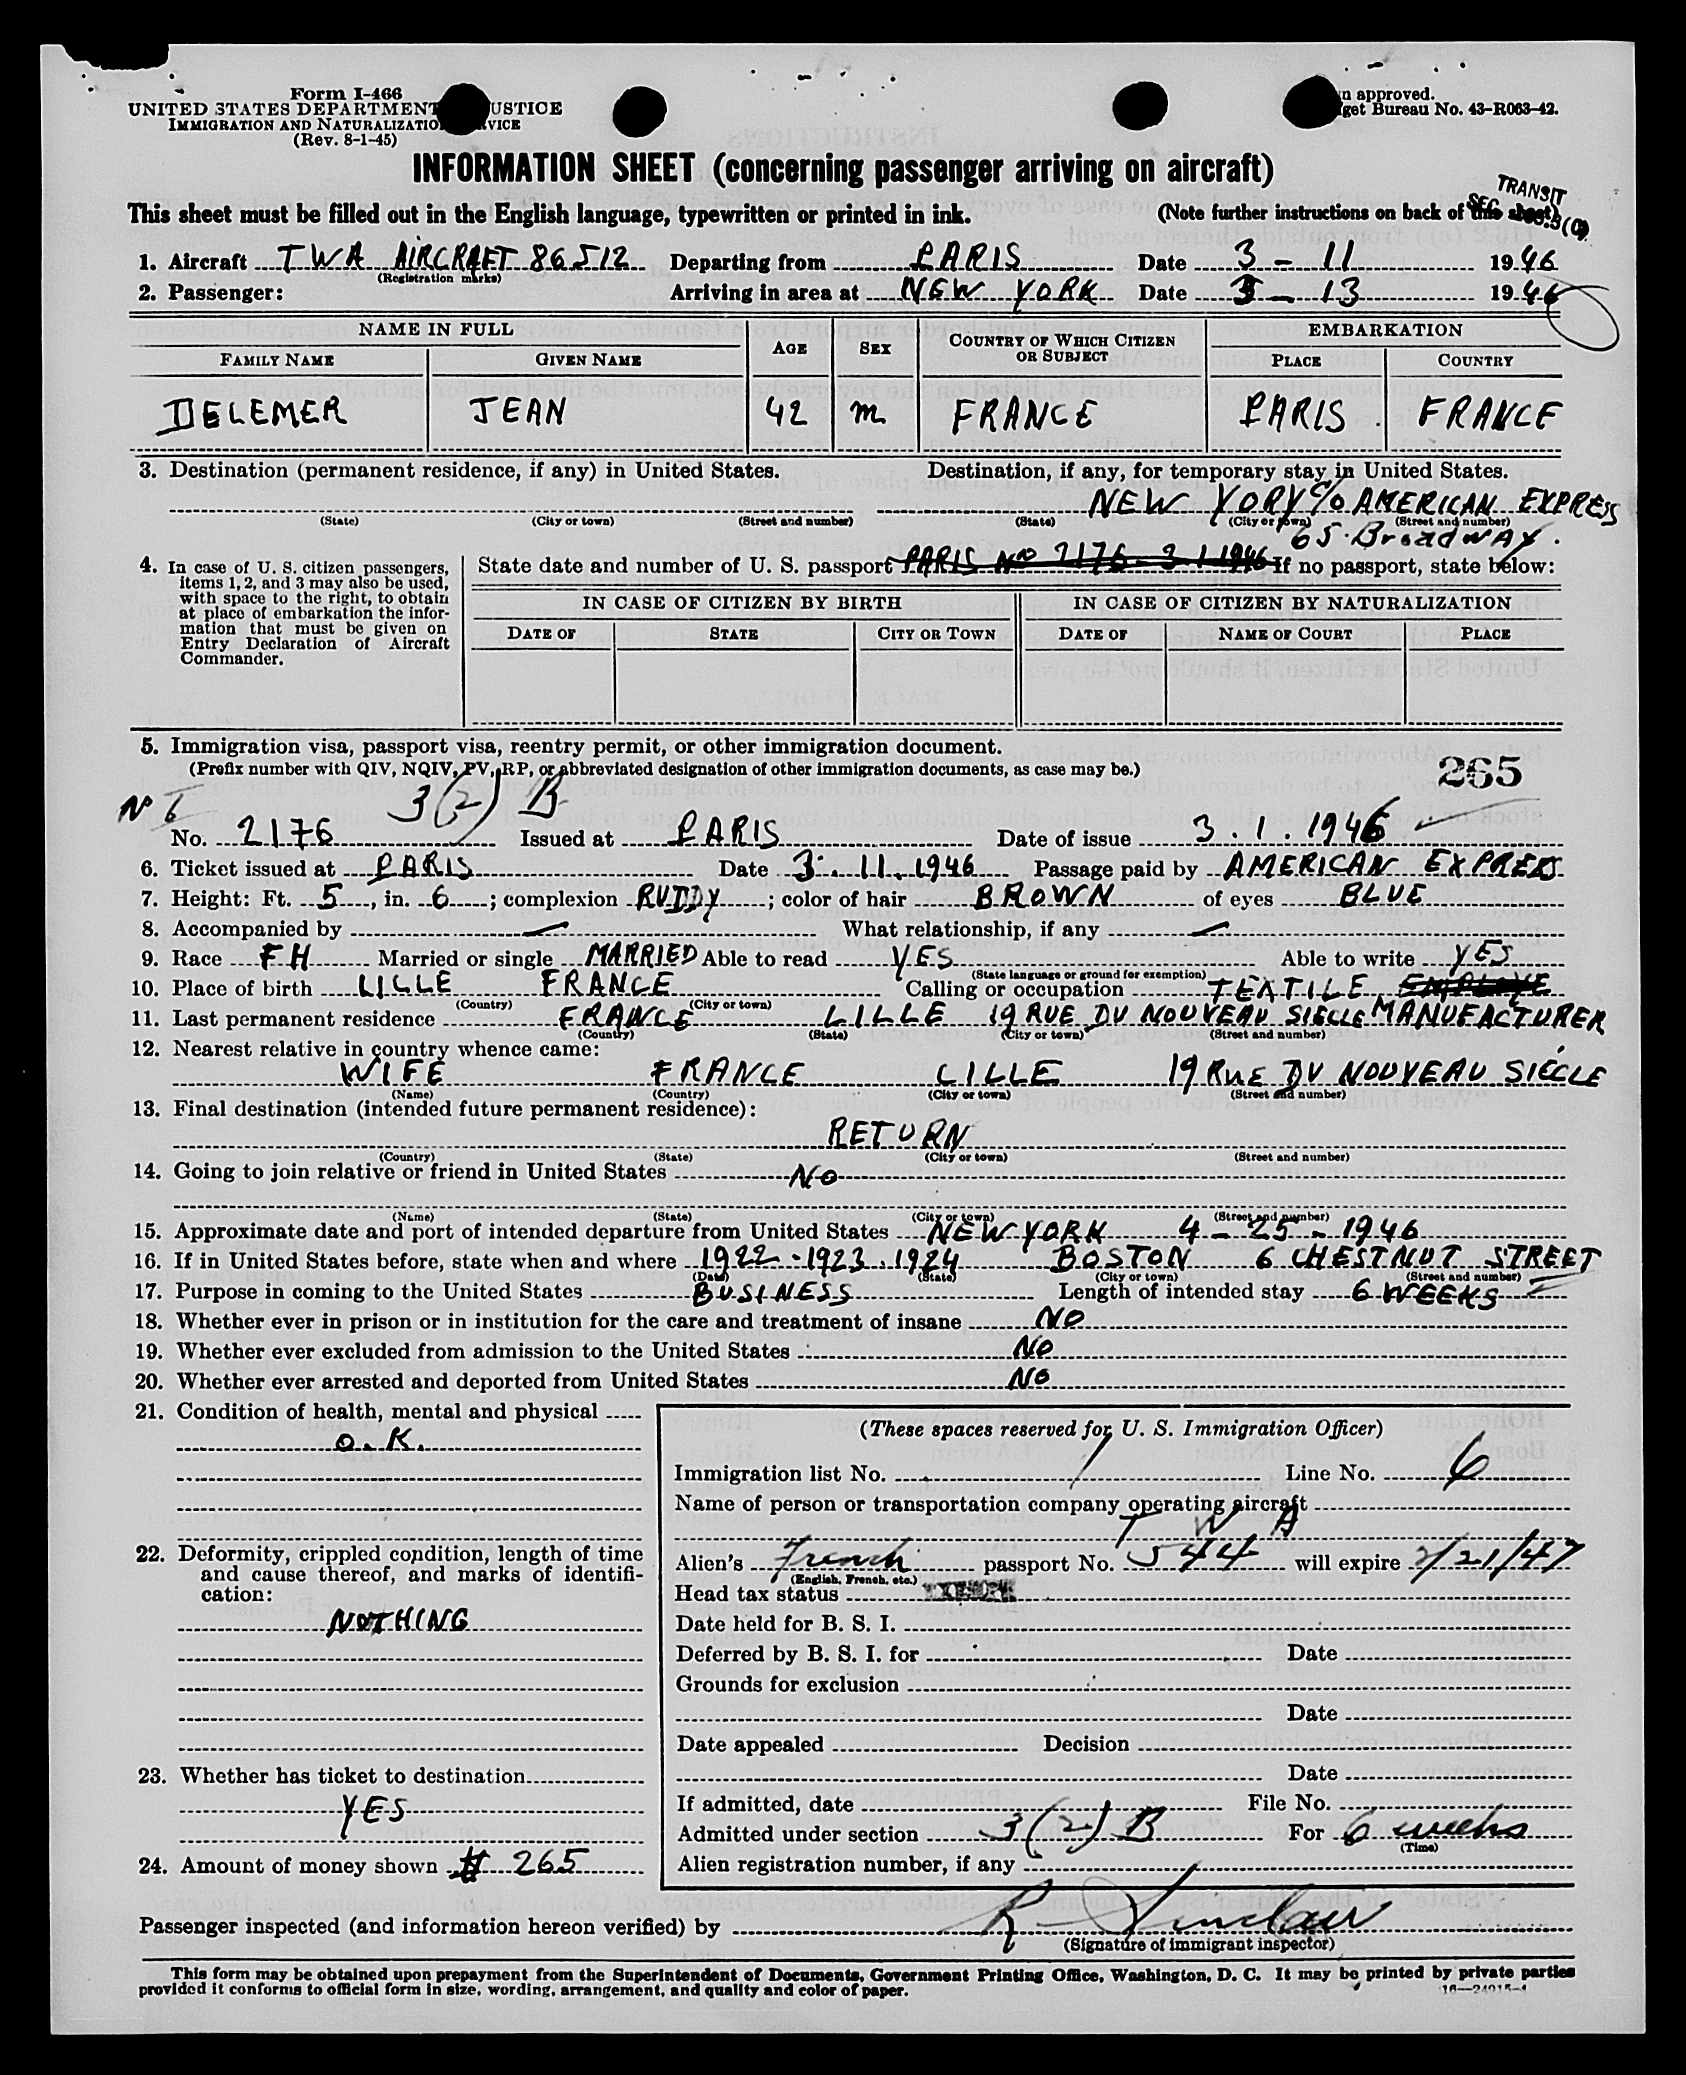 Form I-466
UNITED STATES DEPARTMENT USTICE
IMMIGRATION AND NATURALIZATIO VICE
(Rev. 8-1-45)
n approved.
get Bureau No. 43-R063-42.
INFORMATION SHEET (concerning passenger arriving on aircraft)
TRANSIT
This sheet must be filled out in the English language, typewritten or printed in ink. (Note further instructions on back of this sheet)
1. Aircraft TWA AIRCRAFT 86512 Departing from PARIS Date 3-11 1946
(Registration marks)
2. Passenger: Arriving in area at NEW YORK Date 3-13 1946
NAME IN FULL AGE SEX COUNTRY OF WHICH CITIZEN OR SUBJECT EMBARKATION
FAMILY NAME GIVEN NAME PLACE COUNTRY
DELEMER JEAN 42 M FRANCE PARIS FRANCE
3. Destination (permanent residence, if any) in United States. Destination, if any, for temporary stay in United States.
NEW YORY % AMERICAN EXPRESS
(State) (City or town) (Street and number) (State) (City or town) (Street and number)
65 Broadway.
4. In case of U. S. citizen passengers, items 1, 2, and 3 may also be used, with space to the right, to obtain at place of embarkation the information that must be given on Entry Declaration of Aircraft Commander.
State date and number of U. S. passport PARIS No 2176 - 3 1 1946 If no passport, state below:
IN CASE OF CITIZEN BY BIRTH IN CASE OF CITIZEN BY NATURALIZATION
DATE OF STATE CITY OR TOWN DATE OF NAME OF COURT PLACE
5. Immigration visa, passport visa, reentry permit, or other immigration document.
(Prefix number with QIV, NQIV, PV, RP, or abbreviated designation of other immigration documents, as case may be.)
265
3(2) B
No. 2176 Issued at PARIS Date of issue 3.1.1946
6. Ticket issued at PARIS Date 3.11.1946 Passage paid by AMERICAN EXPRESS
7. Height: Ft. 5, in. 6; complexion RUDDY; color of hair BROWN of eyes BLUE
8. Accompanied by — What relationship, if any —
9. Race FH Married or single MARRIED Able to read YES Able to write YES
(State language or ground for exemption)
10. Place of birth LILLE FRANCE Calling or occupation TEXTILE EMPLOYE
(Country) (City or town)
MANUFACTURER
11. Last permanent residence FRANCE LILLE 19 RUE DU NOUVEAU SIECLE
(Country) (State) (City or town) (Street and number)
12. Nearest relative in country whence came:
WIFE FRANCE LILLE 19 RUE DU NOUVEAU SIÉCLE
(Name) (Country) (City or town) (Street and number)
13. Final destination (intended future permanent residence):
RETURN
(Country) (State) (City or town) (Street and number)
14. Going to join relative or friend in United States NO
(Name) (State) (City or town) (Street and number)
15. Approximate date and port of intended departure from United States NEW YORK 4-25-1946
16. If in United States before, state when and where 1922-1923.1924 BOSTON 6 CHESTNUT STREET
(Date) (State) (City or town) (Street and number)
17. Purpose in coming to the United States BUSINESS Length of intended stay 6 WEEKS
18. Whether ever in prison or in institution for the care and treatment of insane NO
19. Whether ever excluded from admission to the United States NO
20. Whether ever arrested and deported from United States NO
21. Condition of health, mental and physical
O.K.
22. Deformity, crippled condition, length of time and cause thereof, and marks of identification:
NOTHING
23. Whether has ticket to destination
YES
24. Amount of money shown $ 265
(These spaces reserved for U. S. Immigration Officer)
Immigration list No. 1 Line No. 6
Name of person or transportation company operating aircraft
TWA
Alien's French passport No. 544 will expire 2/21/47
(English, French, etc.)
Head tax status
Date held for B. S. I.
Deferred by B. S. I. for Date
Grounds for exclusion
Date
Date appealed Decision
Date
If admitted, date File No.
Admitted under section 3(2) B For 6 weeks
(Time)
Alien registration number, if any
Passenger inspected (and information hereon verified) by R Sinclair
(Signature of immigrant inspector)
This form may be obtained upon prepayment from the Superintendent of Documents, Government Printing Office, Washington, D. C. It may be printed by private parties
provided it conforms to official form in size, wording, arrangement, and quality and color of paper. 16—24015-1